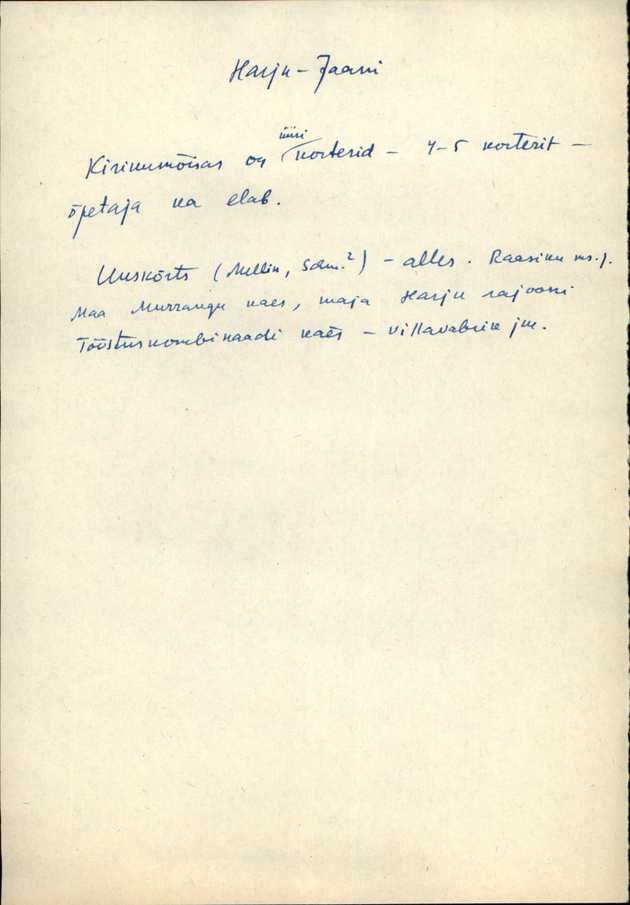 Harju-Jaani
üüri
Kirikumõisas on korterid - 4-5 korterit -
õpetaja ka elab.
Uuskõrts (Mellin, Schm.²) - alles. Raasiku ms.j.
Maa Murrangu käes, maja Harju rajooni
Tööstuskombinaadi käes - villavabrik jm.